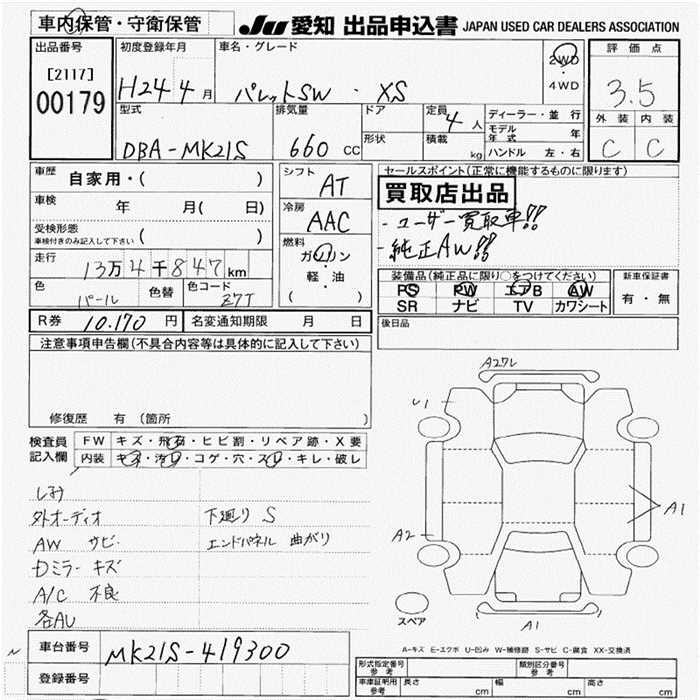 車内保管・守衛保管
JU 愛知 出品申込書 JAPAN USED CAR DEALERS ASSOCIATION
出品番号
[2117]
00179
初度登録年月
H24 4月
車名・グレード
パレットSW・XS
2WD
・
4WD
評価点
3.5
外装 内装
C C
型式
DBA-MK21S
排気量
660 CC
ドア
形状
定員 4人
積載 kg
ディーラー・並行
モデル年式 年
ハンドル 左・右
車歴 自家用・( )
車検 年 月( 日)
受検形態
車検付きのみ記入して下さい ( )
走行 13万4千847km
色 パール 色替 色コード Z7T
シフト AT
冷房 AAC
燃料
ガソリン
・
軽・油
( )
セールスポイント(正常に機能するものに限ります)
買取店出品
・ユーザー買取車!!
・純正AW!!
装備品(純正品に限り○をつけてください)
PS PW エアB AW
SR ナビ TV カワシート
新車保証書
有・無
R券 10.170円 名変通知期限 月 日
後日品
注意事項申告欄(不具合内容等は具体的に記入して下さい)
修復歴 有(箇所 )
検査員記入欄
FW キズ・飛石・ヒビ割・リペア跡・X要
内装 キズ・汚れ・コゲ・穴・スレ・キレ・破レ
しみ
外オーディオ 下廻り S
AW サビ エンドパネル 曲がり
Dミラー キズ
A/C 不良
各AU
A27レ
A1
A2
A1
スペア
A-キズ E-エクボ U-凹み W-補修跡 S-サビ C-腐食 XX-交換済
車台番号 MK21S-419300
登録番号
形式指定番号 参考
類別区分番号 参考
車庫証明用 参考 長さ cm 幅 cm 高さ cm